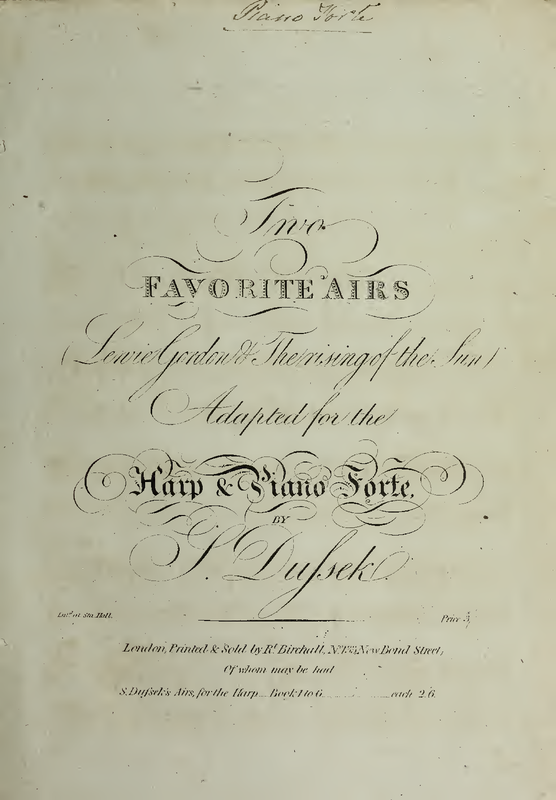 Piano Forte
Two
FAVORITE AIRS
(Lewie Gordon & The rising of the Sun)
Adapted for the
Harp & Piano Forte,
BY
S. Duſsek
Ent.d at Sta. Hall.
Price 3/
London, Printed & Sold by R.t Birchall, N.o 133, New Bond Street,
Of whom may be had
S. Duſsek's Airs, for the Harp ... Book 1 to 6 ... each 2.6.